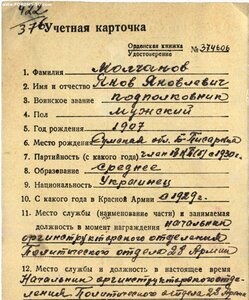 422
376
Учетная карточка
Орденская книжка
Удостоверение № 374606
1. Фамилия Молчанов
2. Имя и отчество Янов Яковлевич
3. Воинское звание подполковник
4. Пол Мужский
5. Год рождения 1907
6. Место рождения Сумская обл. Б-Писаревка
7. Партийность (с какого года) член ВКП(б) с 1930г.
8. Образование Среднее
9. Национальность Украинец
10. С какого года в Красной Армии с 1929г.
11. Место службы (наименование части) и занимаемая
должность в момент награждения начальник
оргинструкторского отделения
Политического отдела 28 Армии
12. Место службы и должность в настоящее время
Начальник оргинструкторского отде-
ления Политического отдела 28 Армии